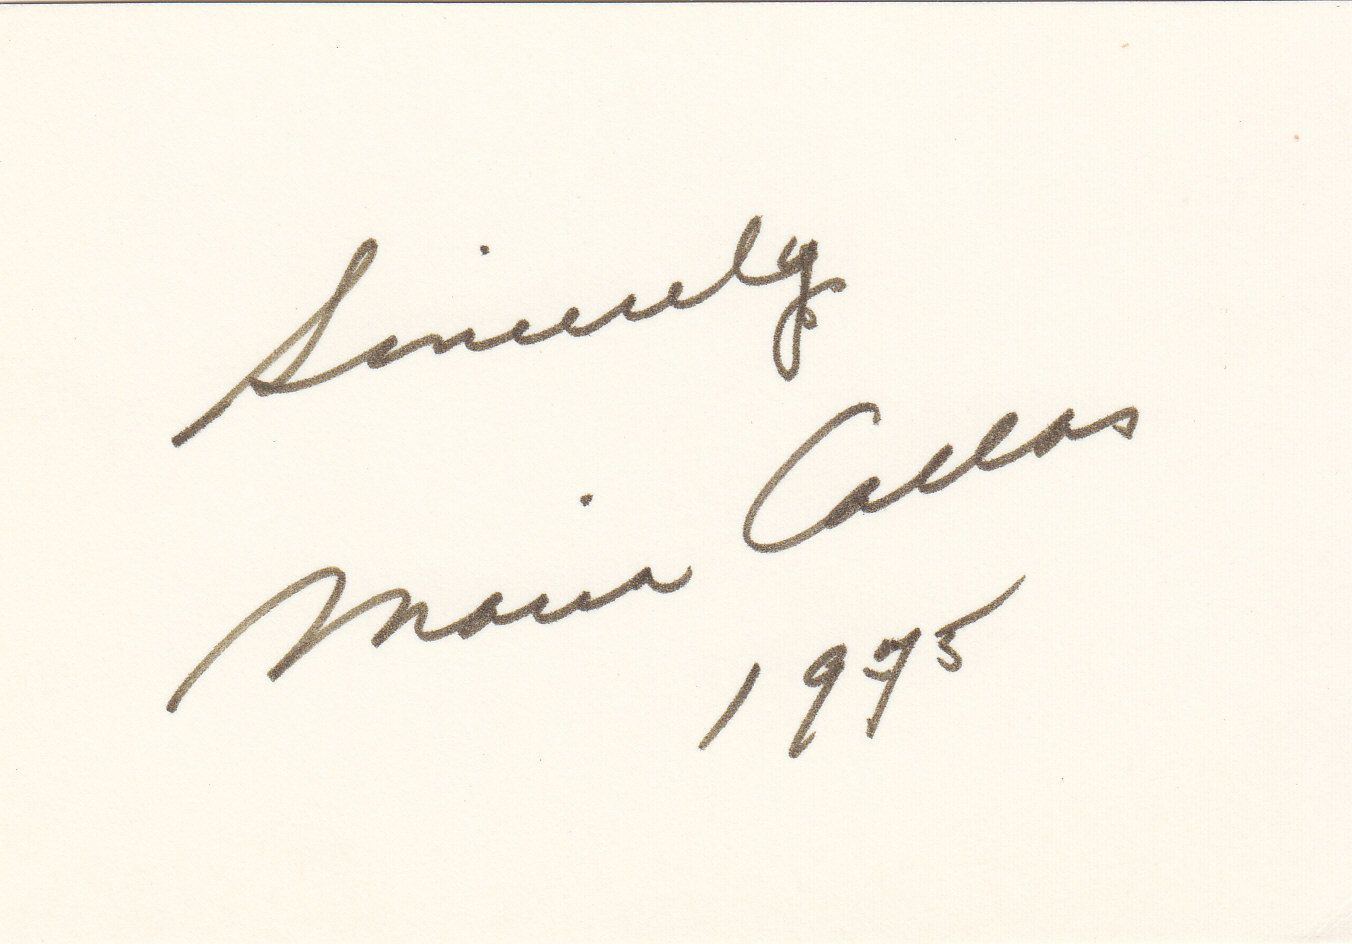 Sincerely
Maria Callas
1975